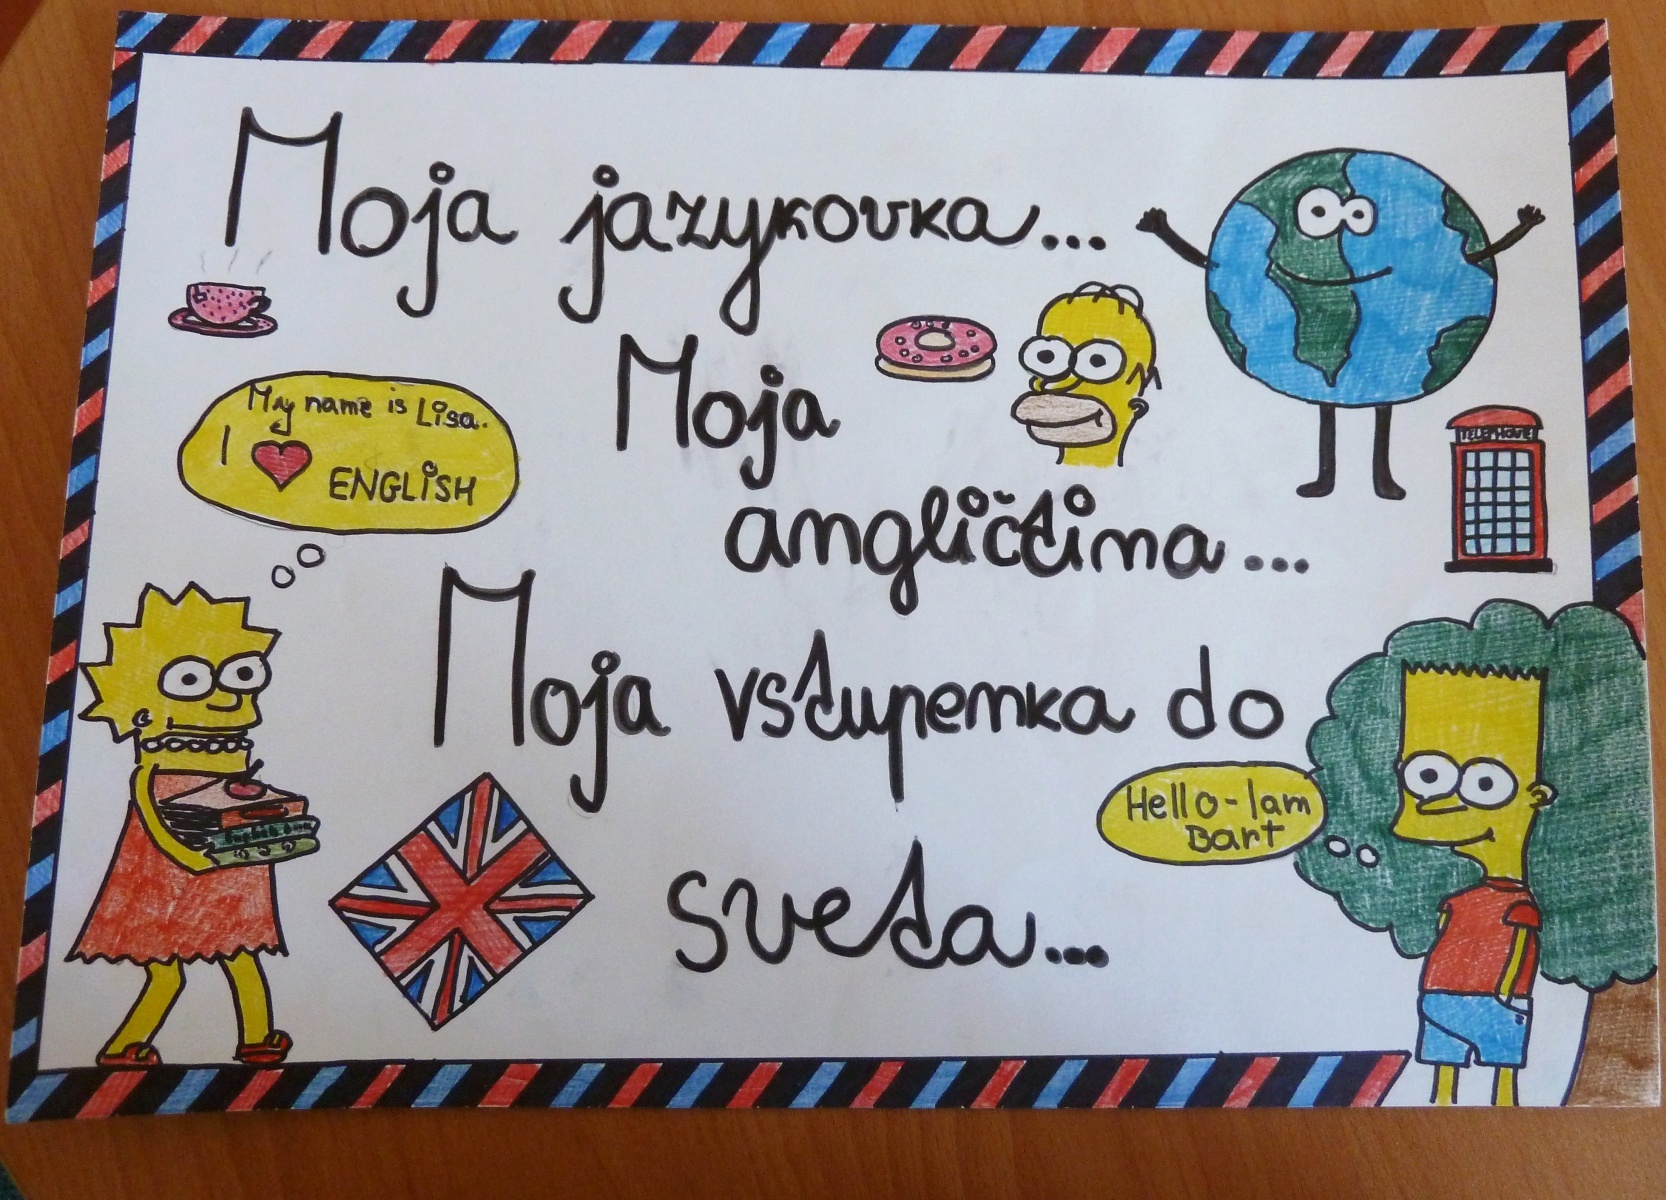 Moja jazykovka...
Moja
angličtina...
My name is Lisa.
I ❤ ENGLISH
TELEPHONE
Moja vstupenka do
sveta...
Hello-I am
Bart